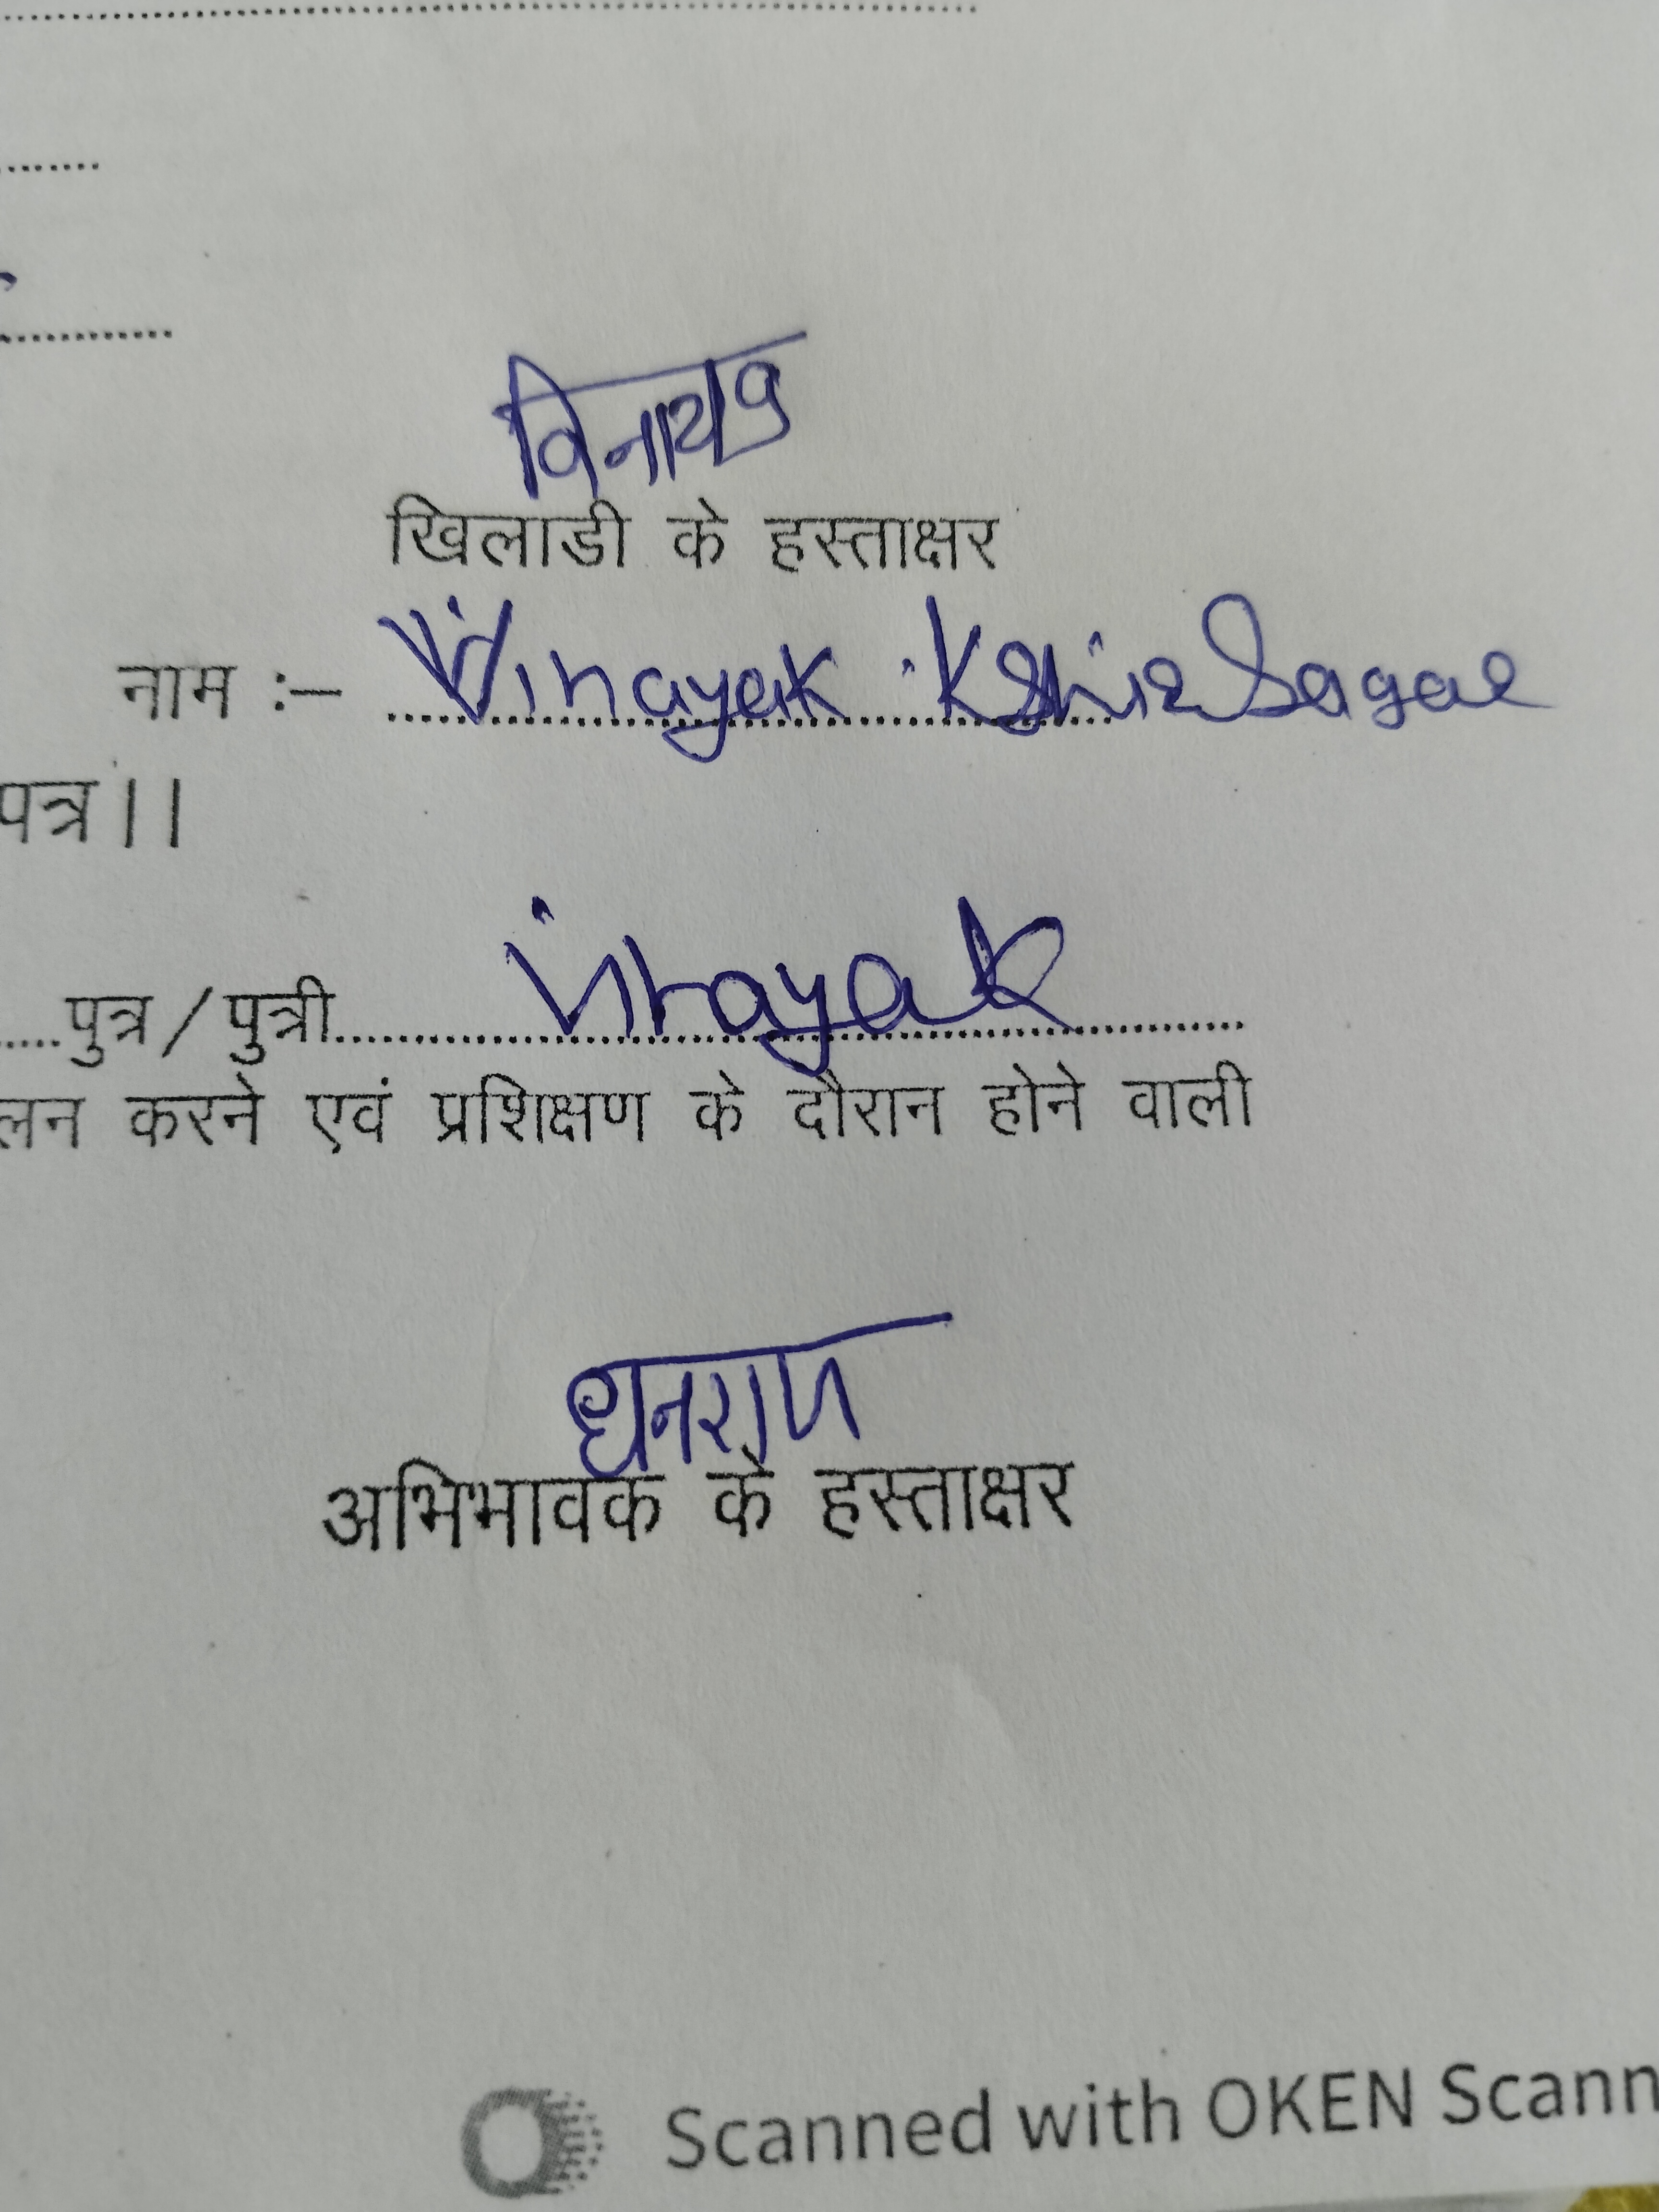 विनायक
खिलाडी के हस्ताक्षर
नाम :– Vinayak Kshirsagar
पत्र।।
.....पुत्र/पुत्री.......Vinayak.......
लन करने एवं प्रशिक्षण के दौरान होने वाली
धनराज
अभिभावक के हस्ताक्षर
Scanned with OKEN Scann